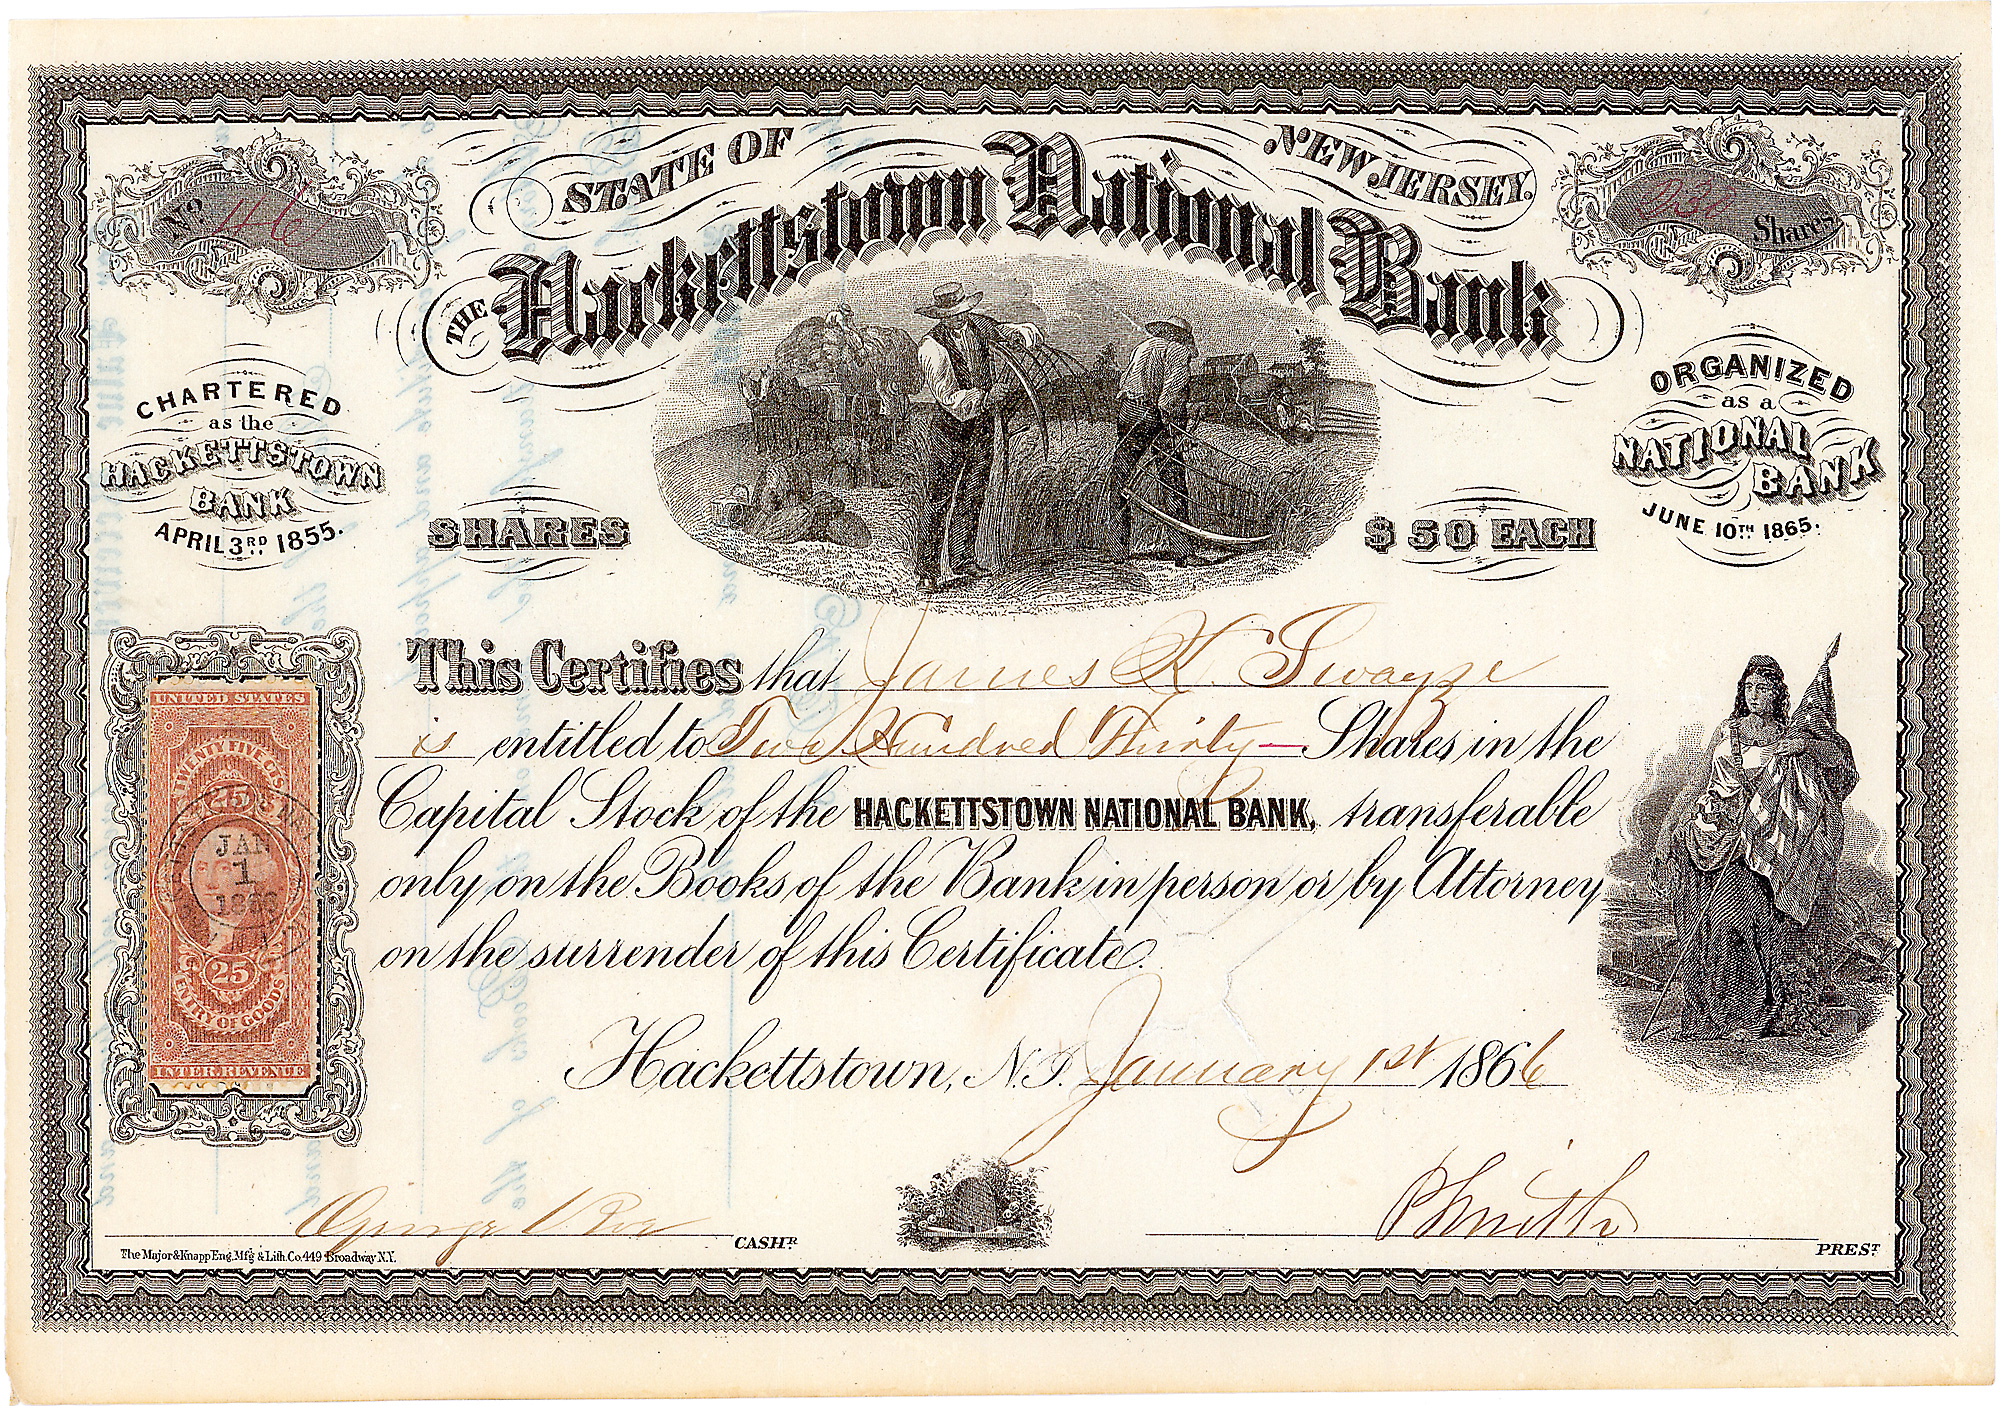 STATE OF NEW JERSEY.
THE Hackettstown National Bank
No 146
230 Shares
CHARTERED
as the
HACKETTSTOWN
BANK
APRIL 3RD 1855.
ORGANIZED
as a
NATIONAL
BANK
JUNE 10TH 1865.
SHARES $50 EACH
This Certifies that James K. Swayze
is entitled to Two Hundred Thirty — Shares, in the
Capital Stock of the HACKETTSTOWN NATIONAL BANK, transferable
only on the Books of the Bank in person or by Attorney
on the surrender of this Certificate.
Hackettstown, N.J. January 1st 1866
UNITED STATES
TWENTY FIVE CTS
25
JAN
1
1866
25
ENTRY OF GOODS
INTER. REVENUE
George Roe CASHR
P Smith PREST
The Major & Knapp Eng. Mfg & Lith. Co. 449 Broadway N.Y.